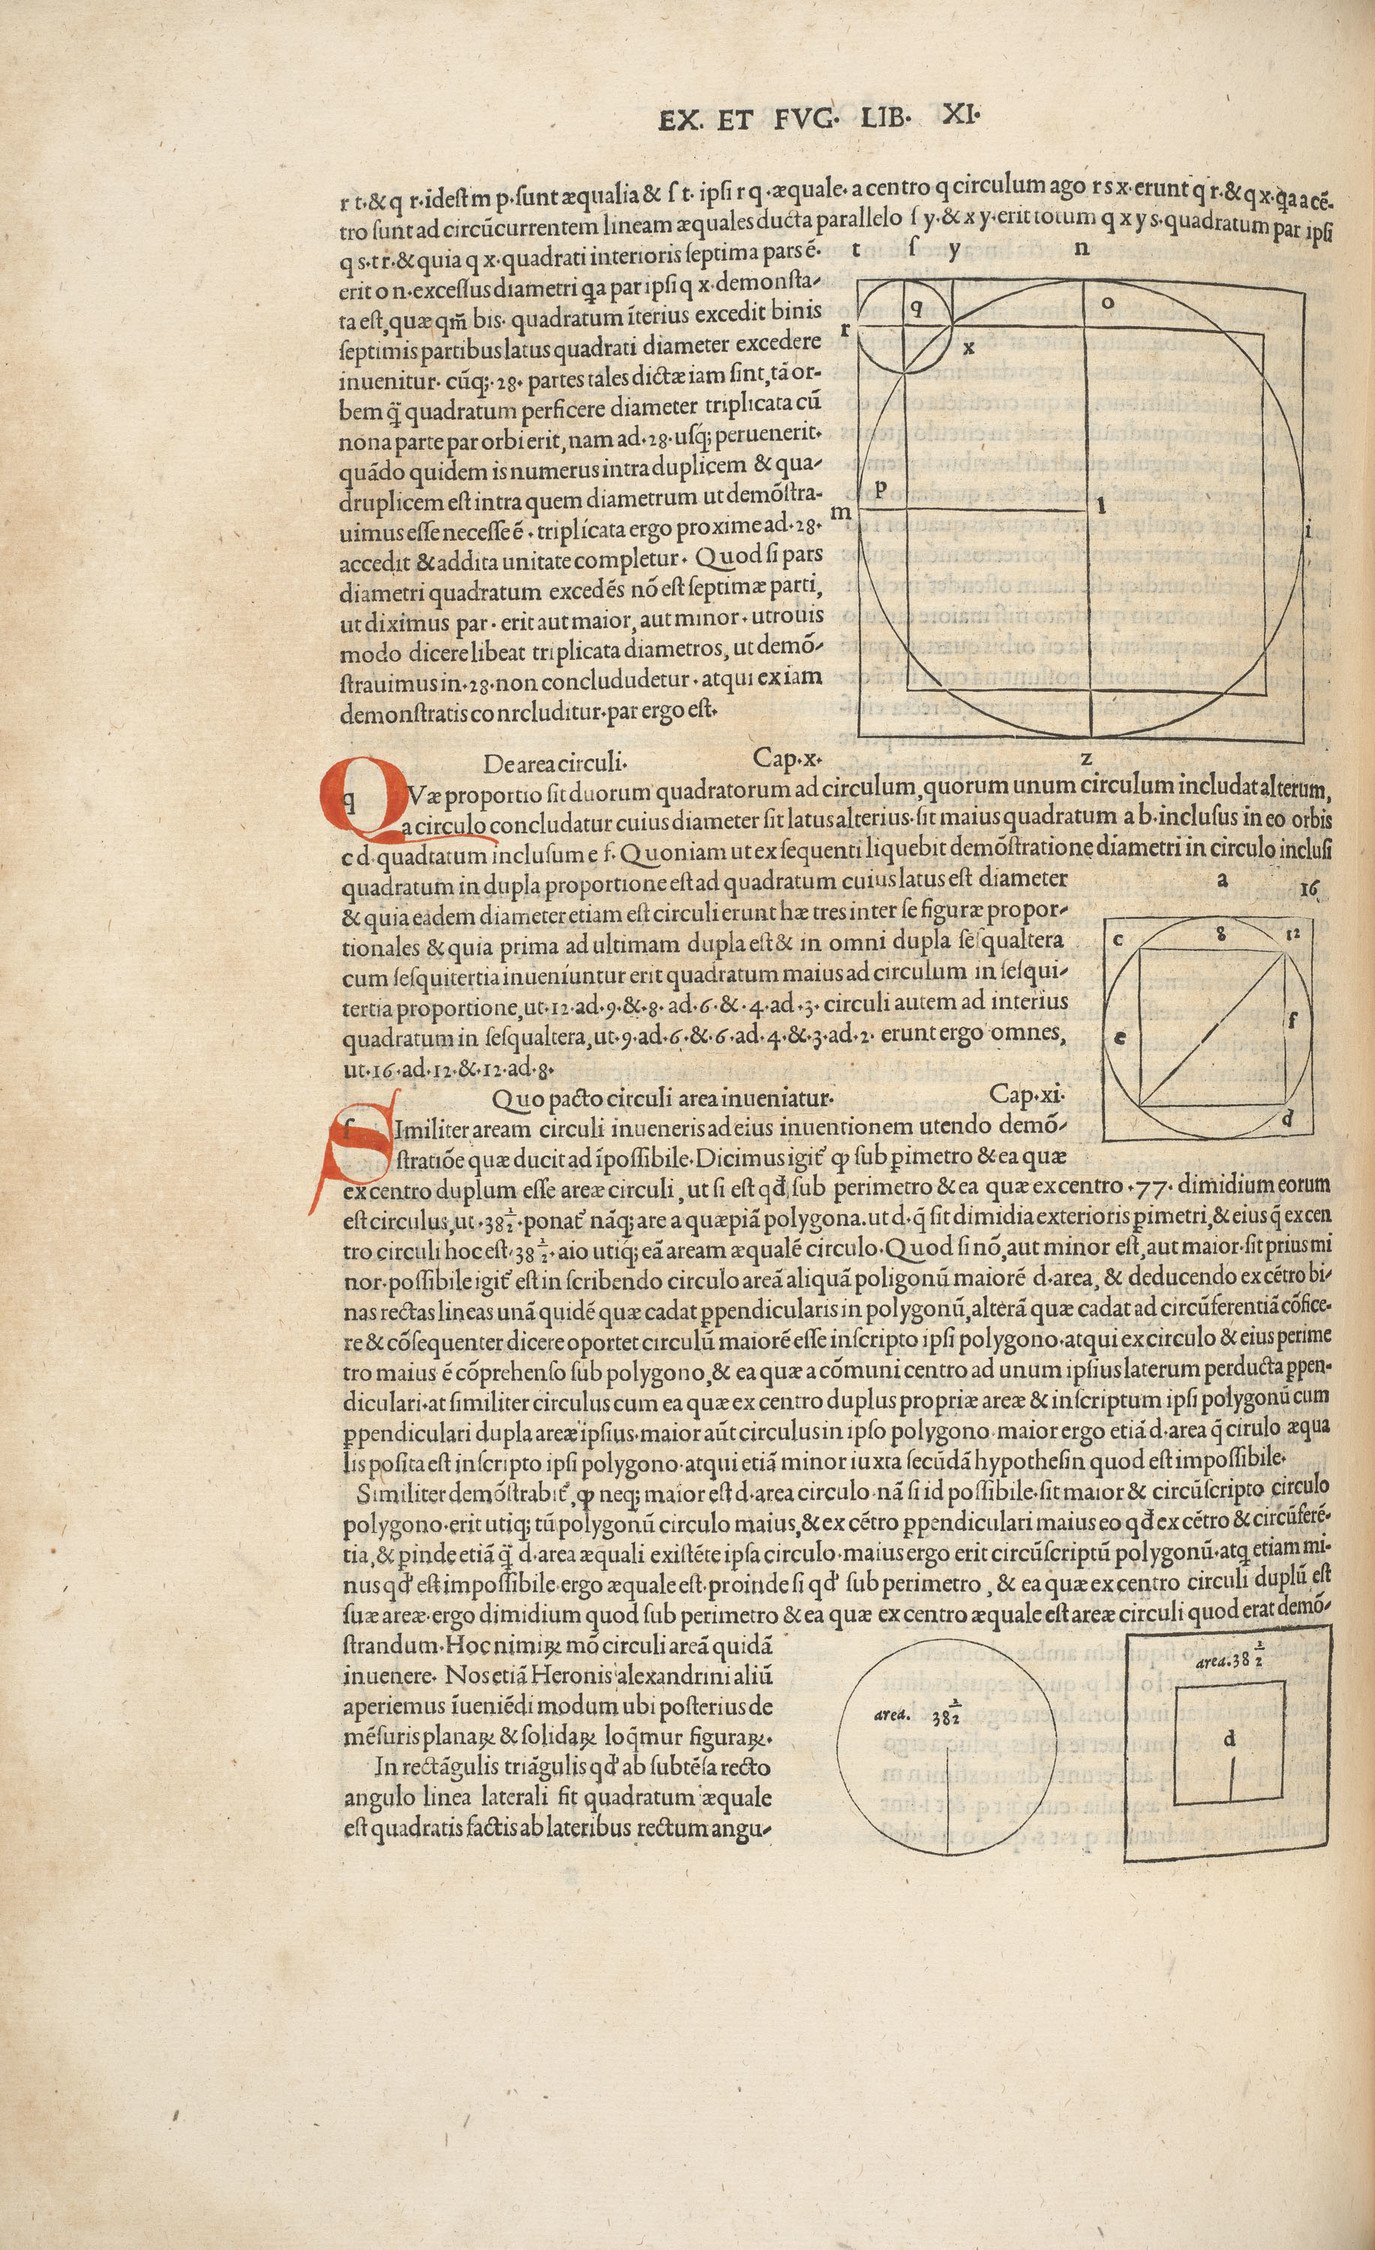 EX. ET FVG. LIB. XI.
r t.& q r.idest m p.sunt æqualia & ſ t. ipſi r q.æquale.a centro q circulum ago r s x.erunt q r.& q x.q̃a a cẽ-
tro ſunt ad circũcurrentem lineam æquales ducta parallelo ſ y.& x y.erit totum q x y s.quadratum par ipſi
q s.t r.& quia q x.quadrati interioris ſeptima pars ẽ.
t ſ y n
erit o n.exceſſus diametri q̃a par ipſi q x.demonſta-
ta eſt,quæ qm̃ bis. quadratum ĩterius excedit binis
q o
ſeptimis partibus latus quadrati diameter excedere
r x
inuenitur. cũq;.28. partes tales dictæ iam ſint,tã or-
bem q̃ quadratum perficere diameter triplicata cũ
nona parte par orbi erit,nam ad.28.uſq; peruenerit.
quãdo quidem is numerus intra duplicem & qua-
druplicem eſt intra quem diametrum ut demõſtra-
p m l i
uimus eſſe neceſſe ẽ.triplicata ergo proxime ad.28.
accedit & addita unitate completur. Quod ſi pars
diametri quadratum excedẽs nõ eſt ſeptimæ parti,
ut diximus par.erit aut maior,aut minor.utrouis
modo dicere libeat triplicata diametros,ut demõ-
ſtrauimus in.28.non conclududetur.atqui ex iam
demonſtratis conrcluditur.par ergo eſt.
z
De area circuli. Cap.x.
q QVæ proportio ſit duorum quadratorum ad circulum,quorum unum circulum includat alterum,
a circulo concludatur cuius diameter ſit latus alterius.ſit maius quadratum a b.incluſus in eo orbis
c d.quadtatum incluſum e f.Quoniam ut ex ſequenti liquebit demõſtratione diametri in circulo incluſi
quadratum in dupla proportione eſt ad quadratum cuius latus eſt diameter
a 16
& quia eadem diameter etiam eſt circuli erunt hæ tres inter ſe figuræ propor-
tionales & quia prima ad ultimam dupla eſt & in omni dupla ſeſqualtera
c 8 12
cum ſeſquitertia inueniuntur erit quadratum maius ad circulum in ſeſqui-
tertia proportione,ut.12.ad.9.&.8. ad.6.&.4.ad.3.circuli autem ad interius
e f
quadratum in ſeſqualtera,ut.9.ad.6.&.6.ad.4.&.3.ad.2. erunt ergo omnes,
ut.16.ad.12.&.12.ad.8.
Quo pacto circuli area inueniatur. Cap.xi.
d
ſ SImiliter aream circuli inueneris ad eius inuentionem utendo demõ-
ſtratiõe quæ ducit ad ĩpoſſibile.Dicimus igit̃ ꝙ ſub ꝑimetro & ea quæ
ex centro duplum eſſe areæ circuli,ut ſi eſt qđ ſub perimetro & ea quæ ex centro.77.dimidium eorum
eſt circulus,ut.38 1/2.ponat̃ nãq; are a quæpiã polygona.ut d.q̃ ſit dimidia exterioris ꝑimetri,& eius q̃ ex cen
tro circuli hoc eſt.38 1/2.aio utiq; eã aream æqualẽ circulo.Quod ſi nõ,aut minor eſt,aut maior.ſit prius mi
nor.poſſibile igit̃ eſt in ſcribendo circulo areã aliquã poligonũ maiorẽ d.area,& deducendo ex cẽtro bi-
nas rectas lineas unã quidẽ quæ cadat ꝑpendicularis in polygonũ,alterã quæ cadat ad circũferentiã cõfice-
re & cõſequenter dicere oportet circulũ maiorẽ eſſe inſcripto ipſi polygono.atqui ex circulo & eius perime
tro maius ẽ cõprehenſo ſub polygono,& ea quæ a cõmuni centro ad unum ipſius laterum perducta ꝑpen-
diculari.at ſimiliter circulus cum ea quæ ex centro duplus propriæ areæ & inſcriptum ipſi polygonũ cum
ꝑpendiculari dupla areæ ipſius.maior aũt circulus in ipſo polygono maior ergo etiã d.area q̃ cirulo æqua
lis poſita eſt inſcripto ipſi polygono.atqui etiã minor iuxta ſecũdã hypotheſin quod eſt impoſſibile.
Similiter demõſtrabit̃,ꝙ neq; maior eſt d.area circulo nã ſi id poſſibile.ſit maior & circũſcripto circulo
polygono.erit utiq; tũ polygonũ circulo maius,& ex cẽtro ꝑpendiculari maius eo qđ ex cẽtro & circũferẽ-
tia,& ꝑinde etiã q̃ d.area æquali exiſtẽte ipſa circulo.maius ergo erit circũſcriptũ polygonũ.atq̃ etiam mi-
nus qđ eſt impoſſibile ergo æquale eſt.proinde ſi qđ ſub perimetro,& ea quæ ex centro circuli duplũ eſt
ſuæ areæ.ergo dimidium quod ſub perimetro & ea quæ ex centro æquale eſt areæ circuli quod erat demõ-
ſtrandum.Hoc nimiꝝ mõ circuli areã quidã
inuenere. Nos etiã Heronis alexandrini aliũ
area.38 1/2
aperiemus ĩueniẽdi modum ubi poſterius de
area. 38 1/2
mẽſuris planaꝝ & ſolidaꝝ loq̃mur figuraꝝ.
d
In rectãgulis triãgulis qđ ab ſubtẽſa recto
angulo linea laterali fit quadratum æquale
eſt quadratis factis ab lateribus rectum angu-